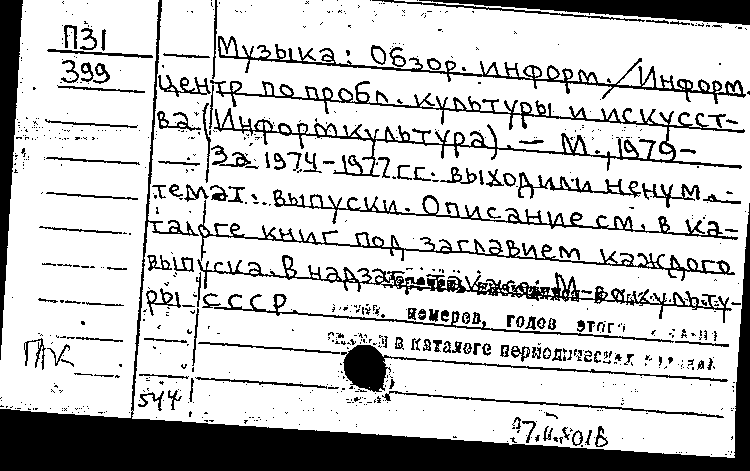 П31
399
Музыка: Обзор. информ. / Информ.
центр по пробл. культуры и искусст-
ва (Информкультура). — М., 1979-
За 1974-1977 гг. выходили ненум.
темат. выпуски. Описание см. в ка-
талоге книг под заглавием каждого
выпуска. В надзаг. М-во культу-
ры СССР.
номеров, годов этого
в каталоге периодических
ГАК
544